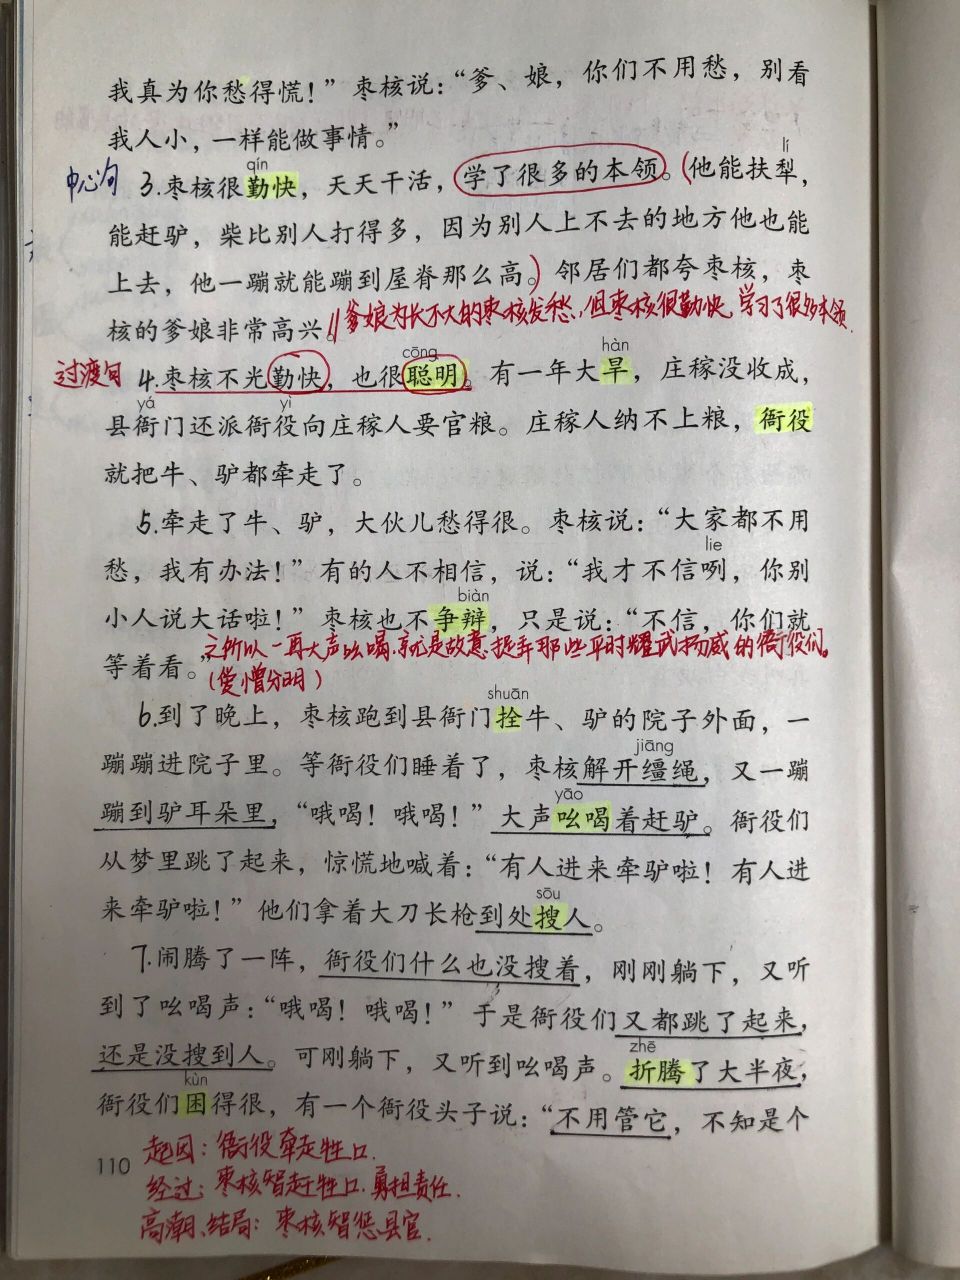 我真为你愁得慌！”枣核说：“爹、娘，你们不用愁，别看
我人小，一样能做事情。”
qín
lí
中心句 3.枣核很勤快，天天干活，学了很多的本领。（他能扶犁，
能赶驴，柴比别人打得多，因为别人上不去的地方他也能
上去，他一蹦就能蹦到屋脊那么高。）邻居们都夸枣核，枣
核的爹娘非常高兴。//爹娘为长不大的枣核发愁，但枣核很勤快，学习了很多本领.
cōng
hàn
过渡句 4.枣核不光勤快，也很聪明。有一年大旱，庄稼没收成，
yá yì
县衙门还派衙役向庄稼人要官粮。庄稼人纳不上粮，衙役
就把牛、驴都牵走了。
5.牵走了牛、驴，大伙儿愁得很。枣核说：“大家都不用
lie
愁，我有办法！”有的人不相信，说：“我才不信咧，你别
biàn
小人说大话啦！”枣核也不争辩，只是说：“不信，你们就
等着看。
之所以一再大声吆喝，就是故意捉弄那些平时耀武扬威的衙役们。
（爱憎分明）
shuān
6.到了晚上，枣核跑到县衙门拴牛、驴的院子外面，一
jiāng
蹦蹦进院子里。等衙役们睡着了，枣核解开缰绳，又一蹦
yāo
蹦到驴耳朵里，“哦喝！哦喝！”大声吆喝着赶驴。衙役们
从梦里跳了起来，惊慌地喊着：“有人进来牵驴啦！有人进
sōu
来牵驴啦！”他们拿着大刀长枪到处搜人。
7.闹腾了一阵，衙役们什么也没搜着，刚刚躺下，又听
到了吆喝声：“哦喝！哦喝！”于是衙役们又都跳了起来，
zhē
还是没搜到人。可刚躺下，又听到吆喝声。折腾了大半夜，
kùn
衙役们困得很，有一个衙役头子说：“不用管它，不知是个
110
起因：衙役牵走牲口.
经过：枣核智赶牲口.勇担责任.
高潮、结局：枣核智惩县官.